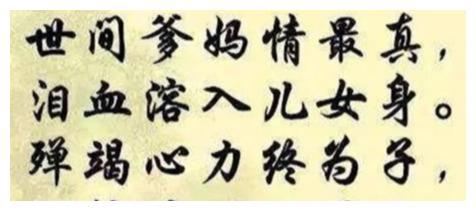 世间爹妈情最真，
泪血溶入儿女身。
殚竭心力终为子，